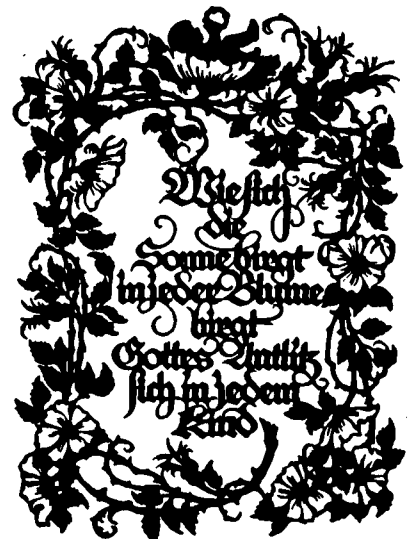 Wie sich
die
Sonne birgt
in jeder Blume
birgt
Gottes Antlitz
sich in jedem
Kind